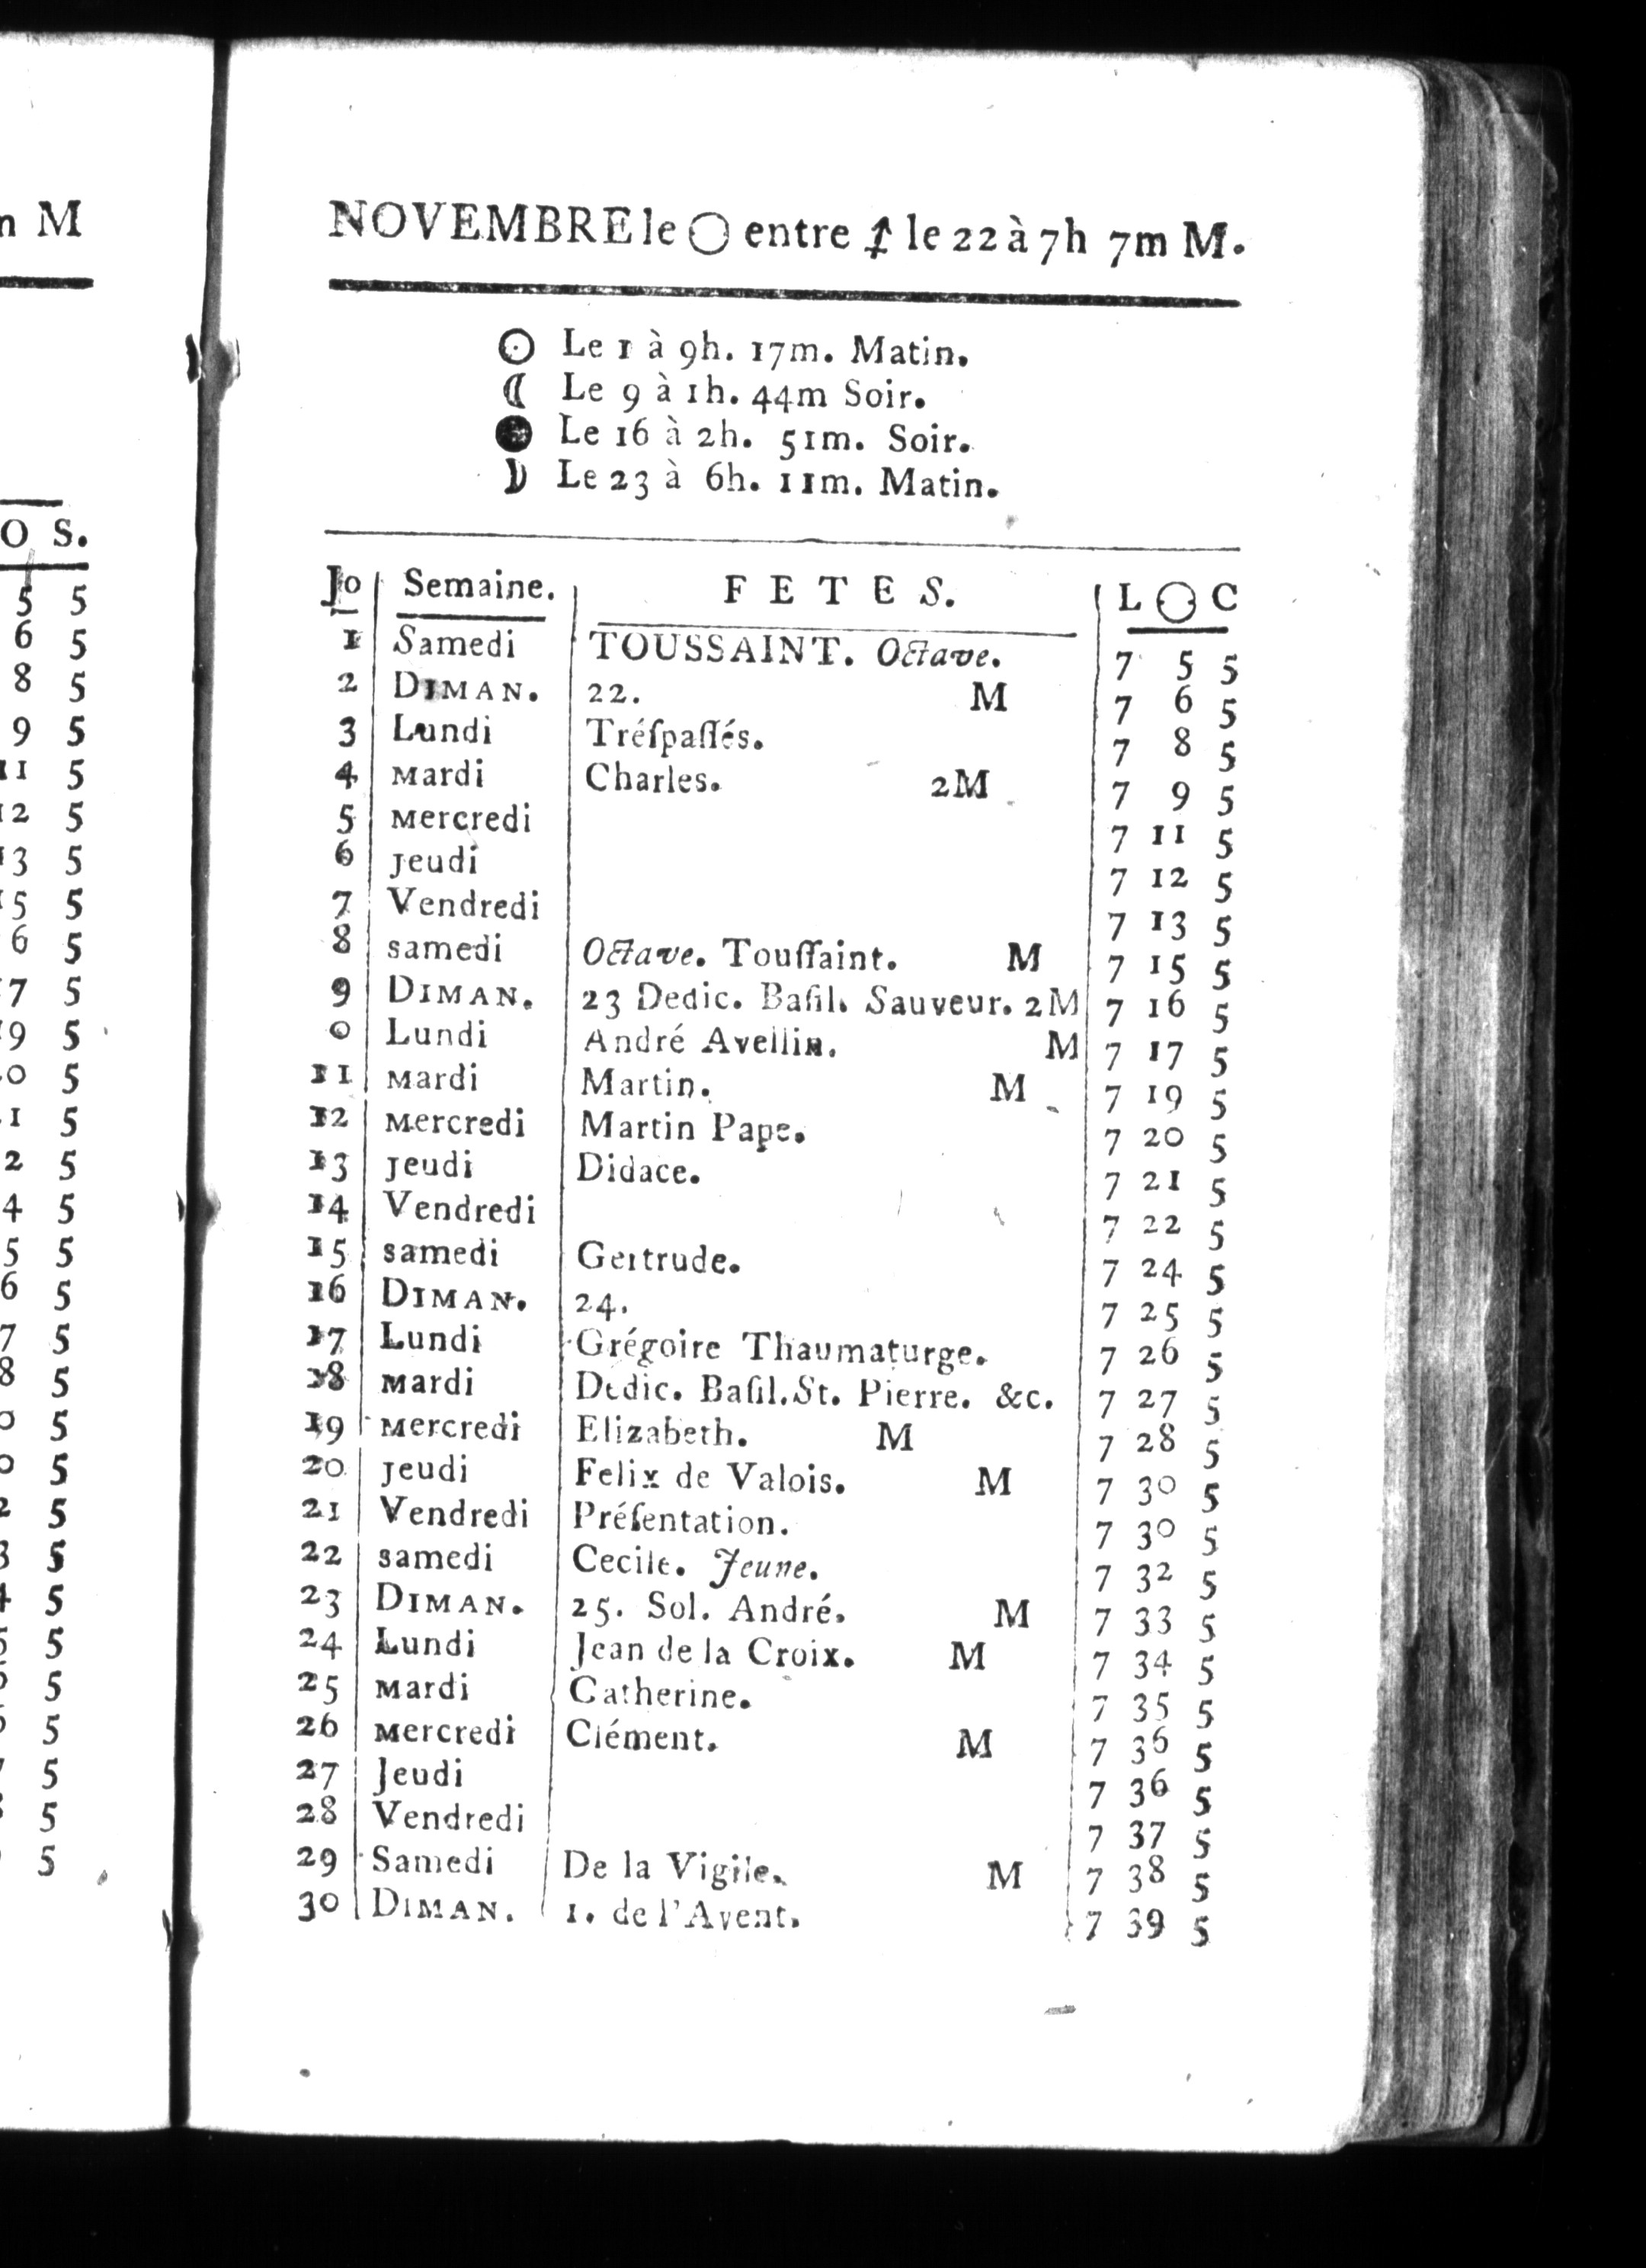 n M
O S.
5 5
6 5
8 5
9 5
11 5
12 5
13 5
15 5
6 5
7 5
9 5
0 5
1 5
2 5
4 5
5 5
6 5
7 5
8 5
0 5
0 5
2 5
3 5
4 5
5 5
5
5
7 5
5
5
NOVEMBRE le ◯ entre ♐ le 22 à 7h 7m M.
☉ Le 1 à 9h. 17m. Matin.
☾ Le 9 à 1h. 44m Soir.
● Le 16 à 2h. 51m. Soir.
☽ Le 23 à 6h. 11m. Matin.
Jo Semaine. FETES. L ◯ C
1 Samedi TOUSSAINT. Octave. 7 5 5
2 DIMAN. 22. M 7 6 5
3 Lundi Tréſpaſſés. 7 8 5
4 Mardi Charles. 2M 7 9 5
5 Mercredi 7 11 5
6 Jeudi 7 12 5
7 Vendredi 7 13 5
8 samedi Octave. Touſſaint. M 7 15 5
9 DIMAN. 23 Dedic. Baſil. Sauveur. 2M 7 16 5
0 Lundi André Avellin. M 7 17 5
11 Mardi Martin. M 7 19 5
12 Mercredi Martin Pape. 7 20 5
13 Jeudi Didace. 7 21 5
14 Vendredi 7 22 5
15 samedi Gertrude. 7 24 5
16 DIMAN. 24. 7 25 5
17 Lundi Grégoire Thaumaturge. 7 26 5
18 Mardi Dedic. Baſil. St. Pierre. &c. 7 27 5
19 Mercredi Elizabeth. M 7 28 5
20 Jeudi Felix de Valois. M 7 30 5
21 Vendredi Préſentation. 7 30 5
22 samedi Cecile. Jeune. 7 32 5
23 DIMAN. 25. Sol. André. M 7 33 5
24 Lundi Jean de la Croix. M 7 34 5
25 Mardi Catherine. 7 35 5
26 Mercredi Clément. M 7 36 5
27 Jeudi 7 36 5
28 Vendredi 7 37 5
29 Samedi De la Vigile. M 7 38 5
30 DIMAN. 1. de l'Avent. 7 39 5